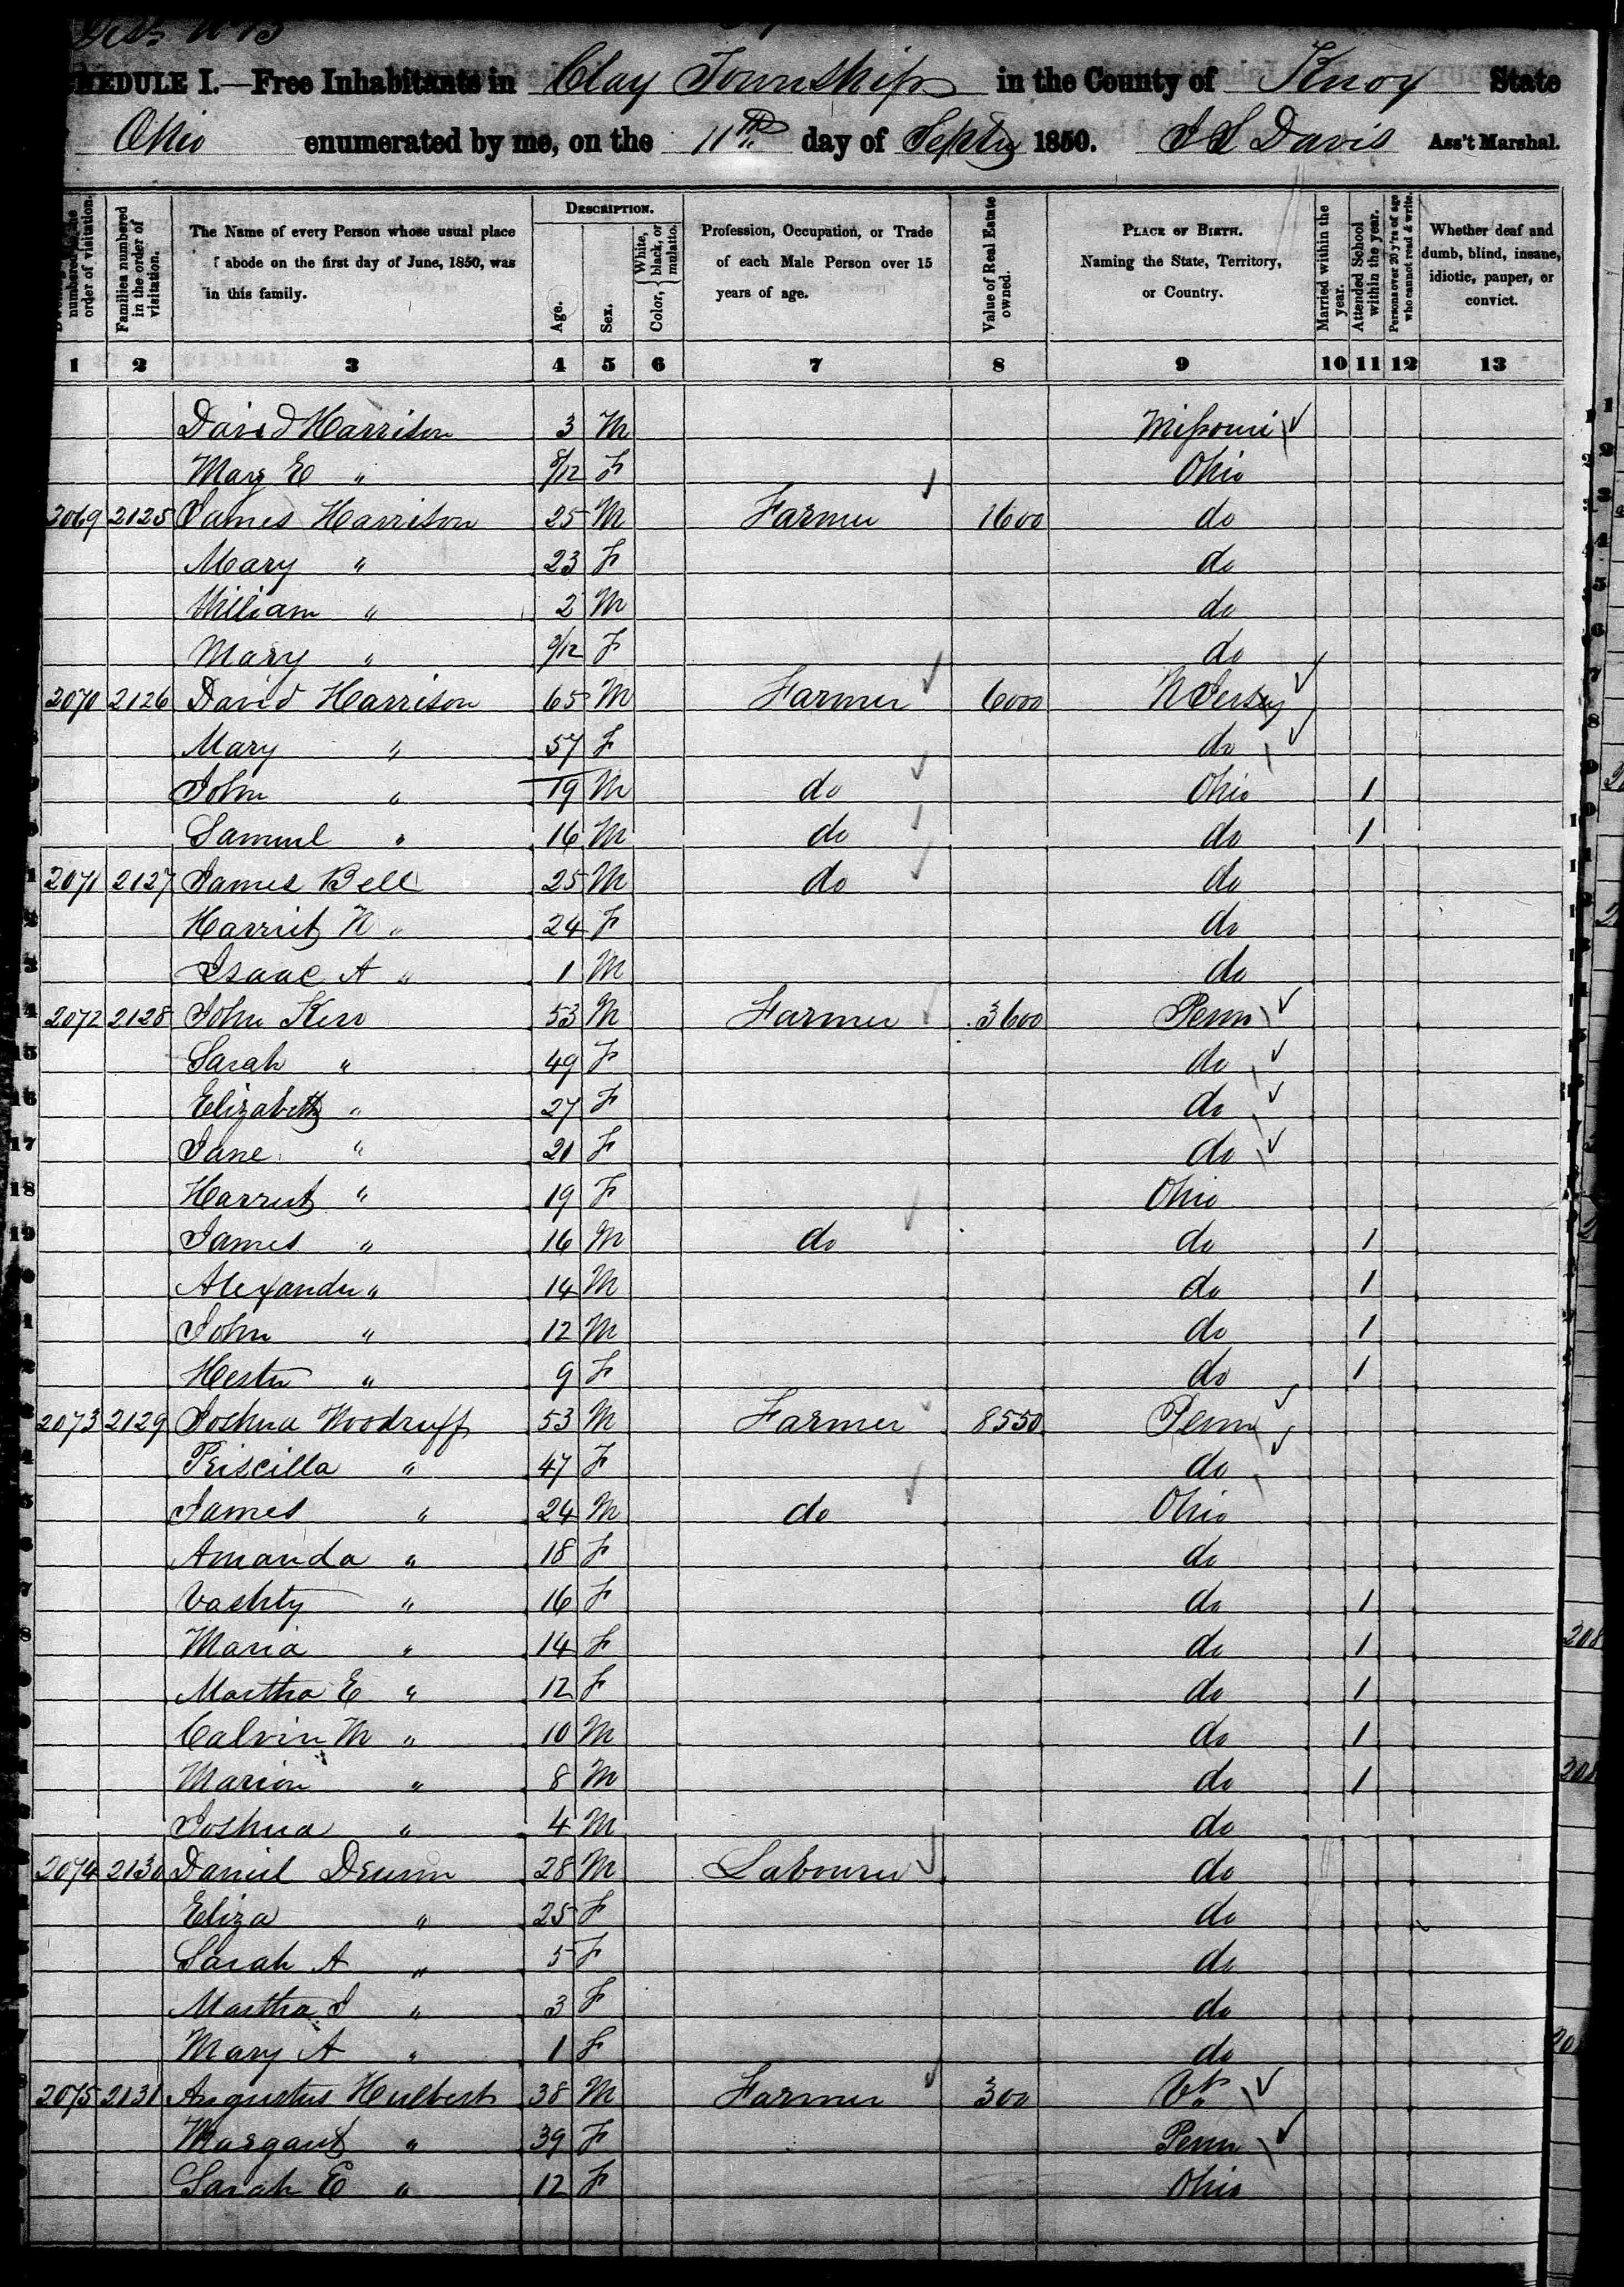 SCHEDULE I.—Free Inhabitants in Clay Township in the County of Knox State
Ohio enumerated by me, on the 11th day of Septr 1850. I L Davis Ass't Marshal.
numbered in the order of visitation.
Families numbered in the order of visitation.
The Name of every Person whose usual place abode on the first day of June, 1850, was in this family.
Description.
Age.
Sex.
Color, White, black, or mulatto.
Profession, Occupation, or Trade of each Male Person over 15 years of age.
Value of Real Estate owned.
Place of Birth. Naming the State, Territory, or Country.
Married within the year.
Attended School within the year.
Persons over 20 y'rs of age who cannot read & write.
Whether deaf and dumb, blind, insane, idiotic, pauper, or convict.
1 2 3 4 5 6 7 8 9 10 11 12 13
David Harrison 3 M Missouri
Mary E " 8/12 F Ohio
2069 2125 James Harrison 25 M Farmer 1600 do
Mary " 23 F do
William " 2 M do
Mary " 9/12 F do
2070 2126 David Harrison 65 M Farmer 6000 N Jersey
Mary " 57 F do
John " 19 M do Ohio 1
Samuel " 16 M do do 1
2071 2127 James Bell 25 M do do
Harriet N " 24 F do
Isaac A " 1 M do
2072 2128 John Kerr 53 M Farmer 3600 Penn
Sarah " 49 F do
Elizabeth " 27 F do
Jane " 21 F do
Harriet " 19 F Ohio
James " 16 M do do 1
Alexander " 14 M do 1
John " 12 M do 1
Hester " 9 F do 1
2073 2129 Joshua Woodruff 53 M Farmer 8550 Penn
Priscilla " 47 F do
James " 24 M do Ohio
Amanda " 18 F do
Vashty " 16 F do 1
Maria " 14 F do 1
Martha E " 12 F do 1
Calvin M " 10 M do 1
Marion " 8 M do 1
Joshua " 4 M do
2074 2130 Daniel 28 M Labourer do
Eliza " 25 F do
Sarah A " 5 F do
Martha J " 3 F do
Mary A " 1 F do
2075 2131 Augustus Hulbert 38 M Farmer 300 Vt
Margaret " 39 F Penn
Sarah E " 12 F Ohio